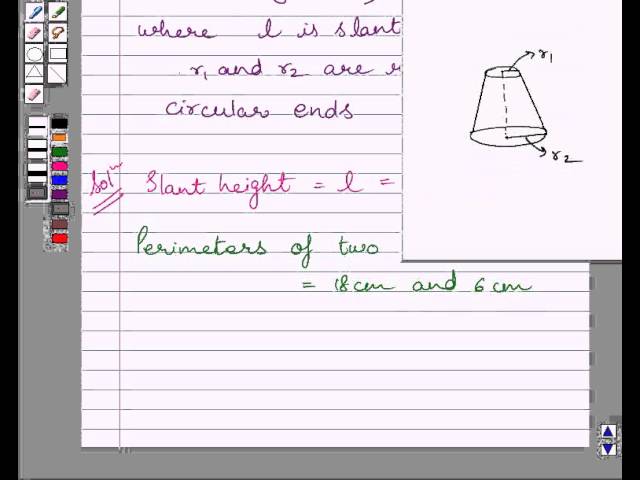 where l is slant
r₁ and r₂ are
circular ends
Solⁿ Slant height = l =
Perimeters of two
= 18cm and 6cm
r₁
r₂